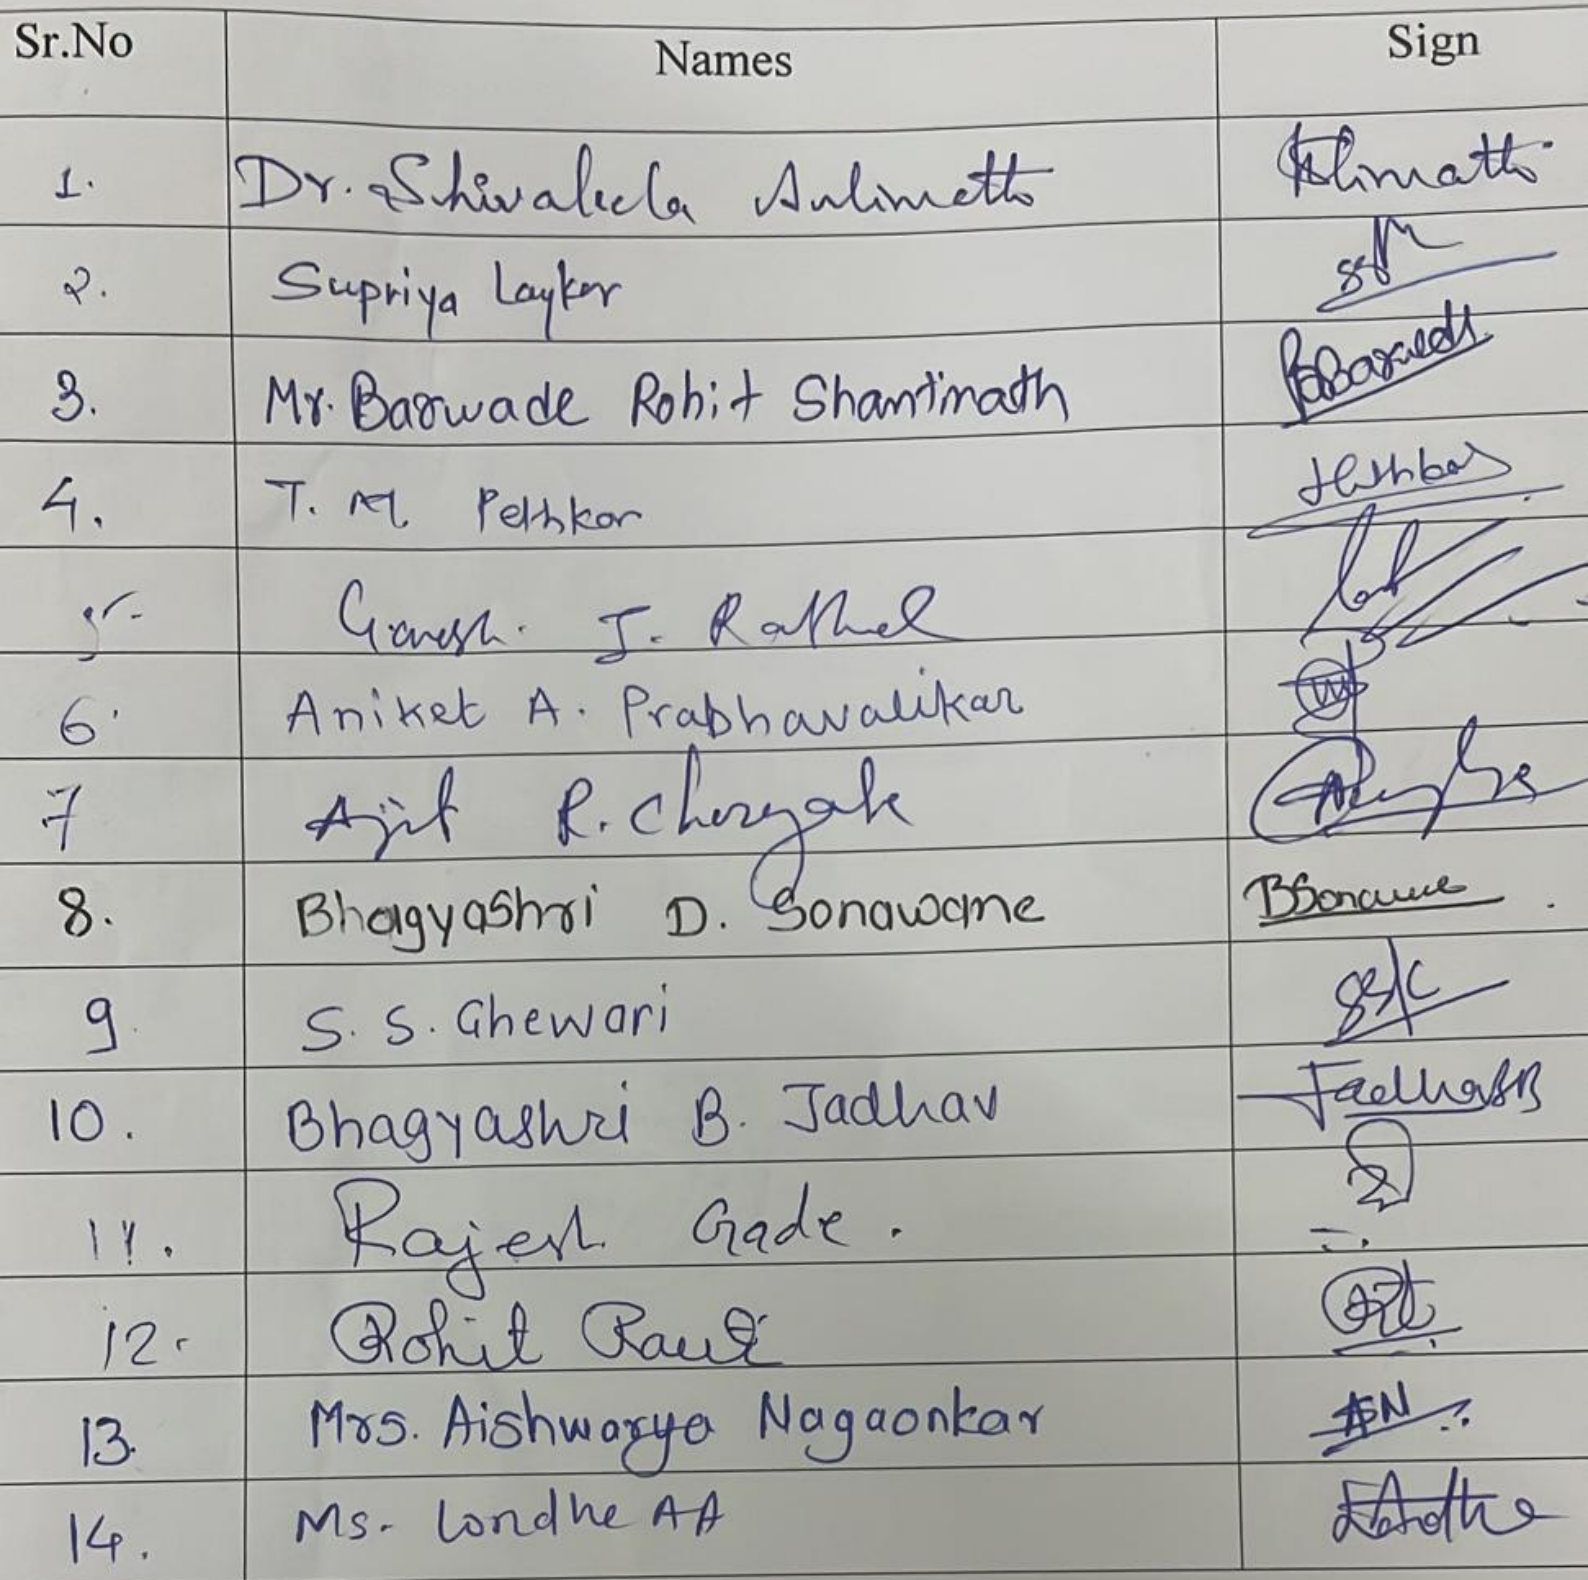 Sr.No Names Sign
1. Dr. Shivaleela Aulimath
2. Supriya Laykar
3. Mr. Barwade Rohit Shantinath
4. T. M. Pethkar
5. Ganesh. J. Rathod
6. Aniket A. Prabhavalikar Ⓜ
7 Ajit R.
8. Bhagyashri D. Sonawane BSonawane
9. S. S. Ghewari
10. Bhagyashri B. Jadhav JadhavBB
11. Rajesh Gade.
12. Rohit Raut
13. Mrs. Aishwarya Nagaonkar ASN
14. Ms. Londhe AA Londhe